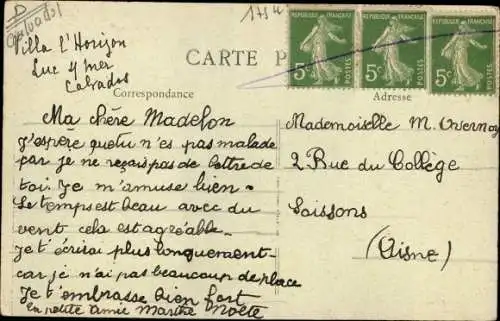 D
Calvados
1754
Villa l'Horizon
Luc s/mer
Calvados
CARTE P
Correspondance
Adresse
REPUBLIQUE FRANÇAISE
5c POSTES
REPUBLIQUE FRANÇAISE
5c POSTES
REPUBLIQUE FRANÇAISE
5c POSTES
Ma chère Madelon
J'espère que tu n'es pas malade
car je ne reçais pas de lettre de
toi. Je m'amuse bien.
Le temps est beau avec du
vent cela est agréable.
Je t'écrirai plus longuement
car je n'ai pas beaucoup de place
Je t'embrasse bien fort
Ta petite amie Marthe
Mademoiselle M. Overnoy
2 Rue du Collège
Soissons
(Aisne)